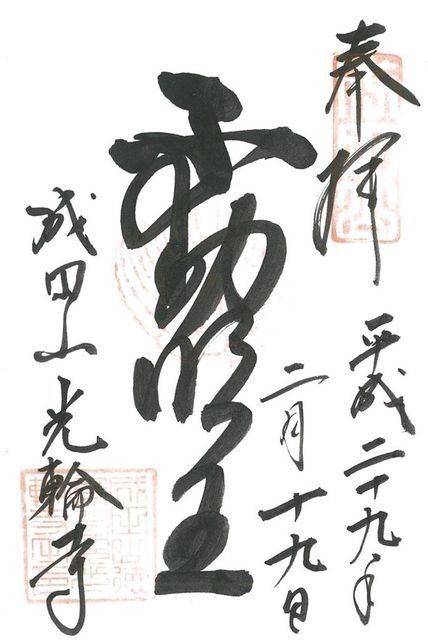 奉拝
平成二十九年
二月十九日
不動明王
成田山光輪寺